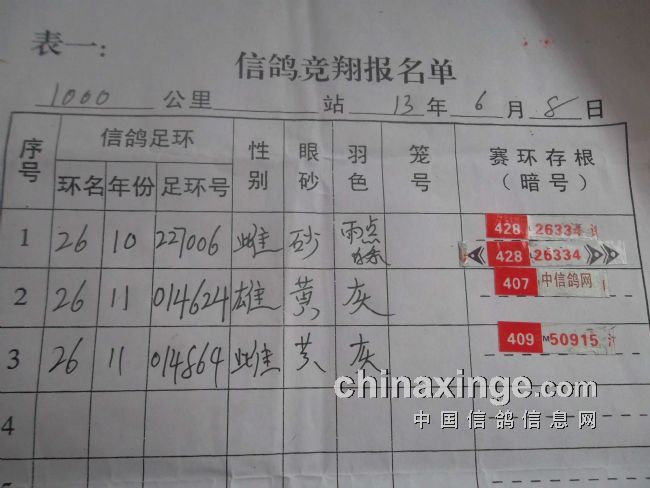 表一:
信鸽竞翔报名单
1000 公里 站 13 年 6 月 8 日
序号 信鸽足环 性别 眼砂 羽色 笼号 赛环存根(暗号)
环名 年份 足环号
1 26 10 227006 雌 砂 雨点 428 26334
428 26334
2 26 11 014624 雄 黄 灰 407 中信鸽网
3 26 11 014864 雌 黄 灰 409 50915
chinaxinge.com
4 中国信鸽信息网